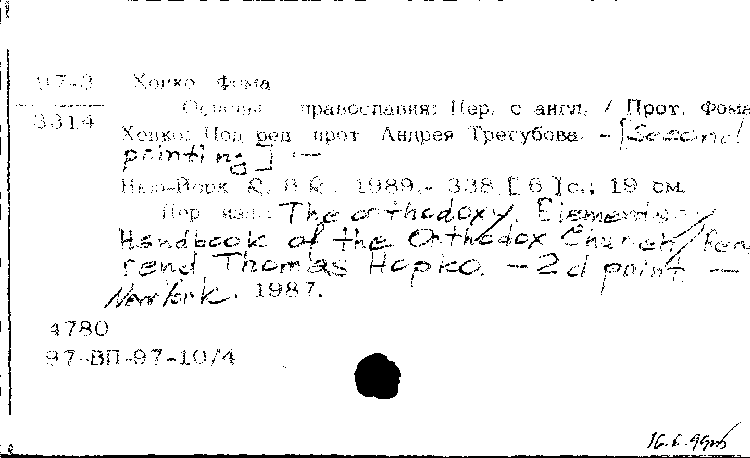 97-3 Хопко Фома
3314 Основы православия: Пер. с англ. / Прот. Фома
Хопко: Под ред. прот. Андрея Трегубова. - [Second
printing] . —
Нью-Йорк 1989.- 338,[6]с.; 19 см.
Пер. изд.: The orthodoxy. Elementary
Handbook of the Orthodox Church/Reve
rend Thomas Hopko. - 2d print. —
New York. 1987.
4780
97-ВП-97-10/4
16.6.99